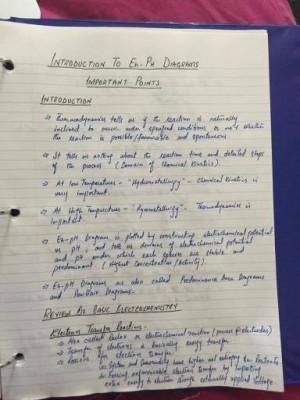 INTRODUCTION TO Eh-PH DIAGRAMS
IMPORTANT POINTS
INTRODUCTION
Thermodynamics tells us if the reaction is naturally
inclined to occur under specified conditions or not whether
the reaction is possible/favourable and spontaneous.
It tells us nothing about the reaction time and detailed steps
of the process (Domain of Chemical Kinetics).
At low Temperatures - "Hydrometallurgy" - Chemical Kinetics is
very important.
At High Temperature - "Pyrometallurgy" - Thermodynamics is
important.
Eh-pH Diagram is plotted by constructing electrochemical potential
vs pH and tells us domains of electrochemical potential
and pH under which each species are stable and
predominant (Highest Concentration/Activity).
Eh-pH Diagrams are also called Predominance Area Diagrams
and Pourbaix Diagrams.
REVIEW OF BASIC ELECTROCHEMISTRY
Electron Transfer Reactions:
Also called Redox or electrochemical reaction (process @ electrodes)
Transfer of electrons is basically energy transfer
Reasons for electron transfer
System and Surroundings have higher net entropy
Forcing unfavourable electron transfer by imparting
extra energy to electron through externally applied voltage.